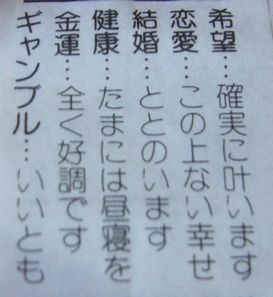 希望…確実に叶います
恋愛…この上ない幸せ
結婚…ととのいます
健康…たまには昼寝を
金運…全く好調です
ギャンブル…いいとも